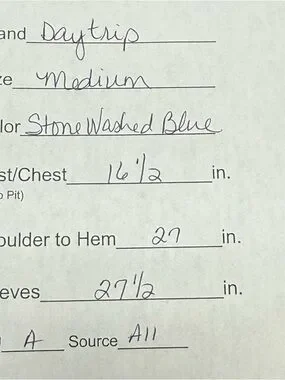 and Daytrip
ze Medium
lor Stone Washed Blue
st/Chest 16 1/2 in.
o Pit)
oulder to Hem 27 in.
eves 27 1/2 in.
A Source All